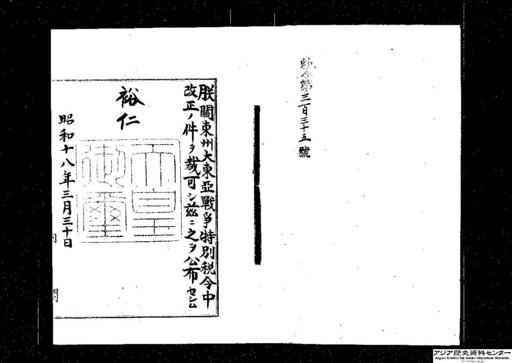 勅令第三百三十五號
朕關東州大東亞戰爭特別税令中
改正ノ件ヲ裁可シ茲ニ之ヲ公布セシム
裕仁
天皇御璽
昭和十八年三月三十日
アジア歴史資料センター
Japan Center for Asian Historical Records